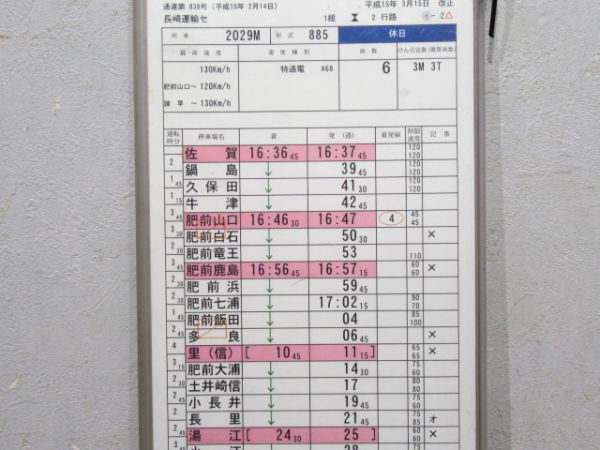 達第 838号 (平成15年 2月14日) 平成15年 3月15日 改正
長崎運輸セ 1組 2 行路 ⑥-2△
列車 2029M 形式 885 休日
最高速度 速度種別 両数 けん引定数(換算両数)
130Km/h 特通電 A68 6 3M 3T
肥前山口～ 120Km/h
諫 早～ 130Km/h
運転時分 停車場名 着 発 (通) 着発線 制限速度 記事
佐賀 16:36 45 16:37 45 120 120
2 鍋島 ↓ 39 45 120 120
1 45 久保田 ↓ 41 30 120 120
1 15 牛津 ↓ 42 45
3 45 肥前山口 16:46 30 16:47 4 45 45
3 30 肥前白石 ↓ 50 30 ×
2 30 肥前竜王 ↓ 53 110
3 45 肥前鹿島 16:56 45 16:57 15 60 60 ×
2 30 肥前浜 ↓ 59 45
2 30 肥前七浦 ↓ 17:02 15 90 70
1 45 肥前飯田 ↓ 04 85 100
2 45 多良 ↓ 06 45 ×
4 里(信) [ 10 45 11 15 ] 65 65 ×
3 15 肥前大浦 ↓ 14 30 75 60
2 30 土井崎信 ↓ 17 80
2 45 小長井 ↓ 19 45 75 60
2 長里 ↓ 21 45 75 85 オ
2 45 湯江 [ 24 30 25 ] 60 60 ×